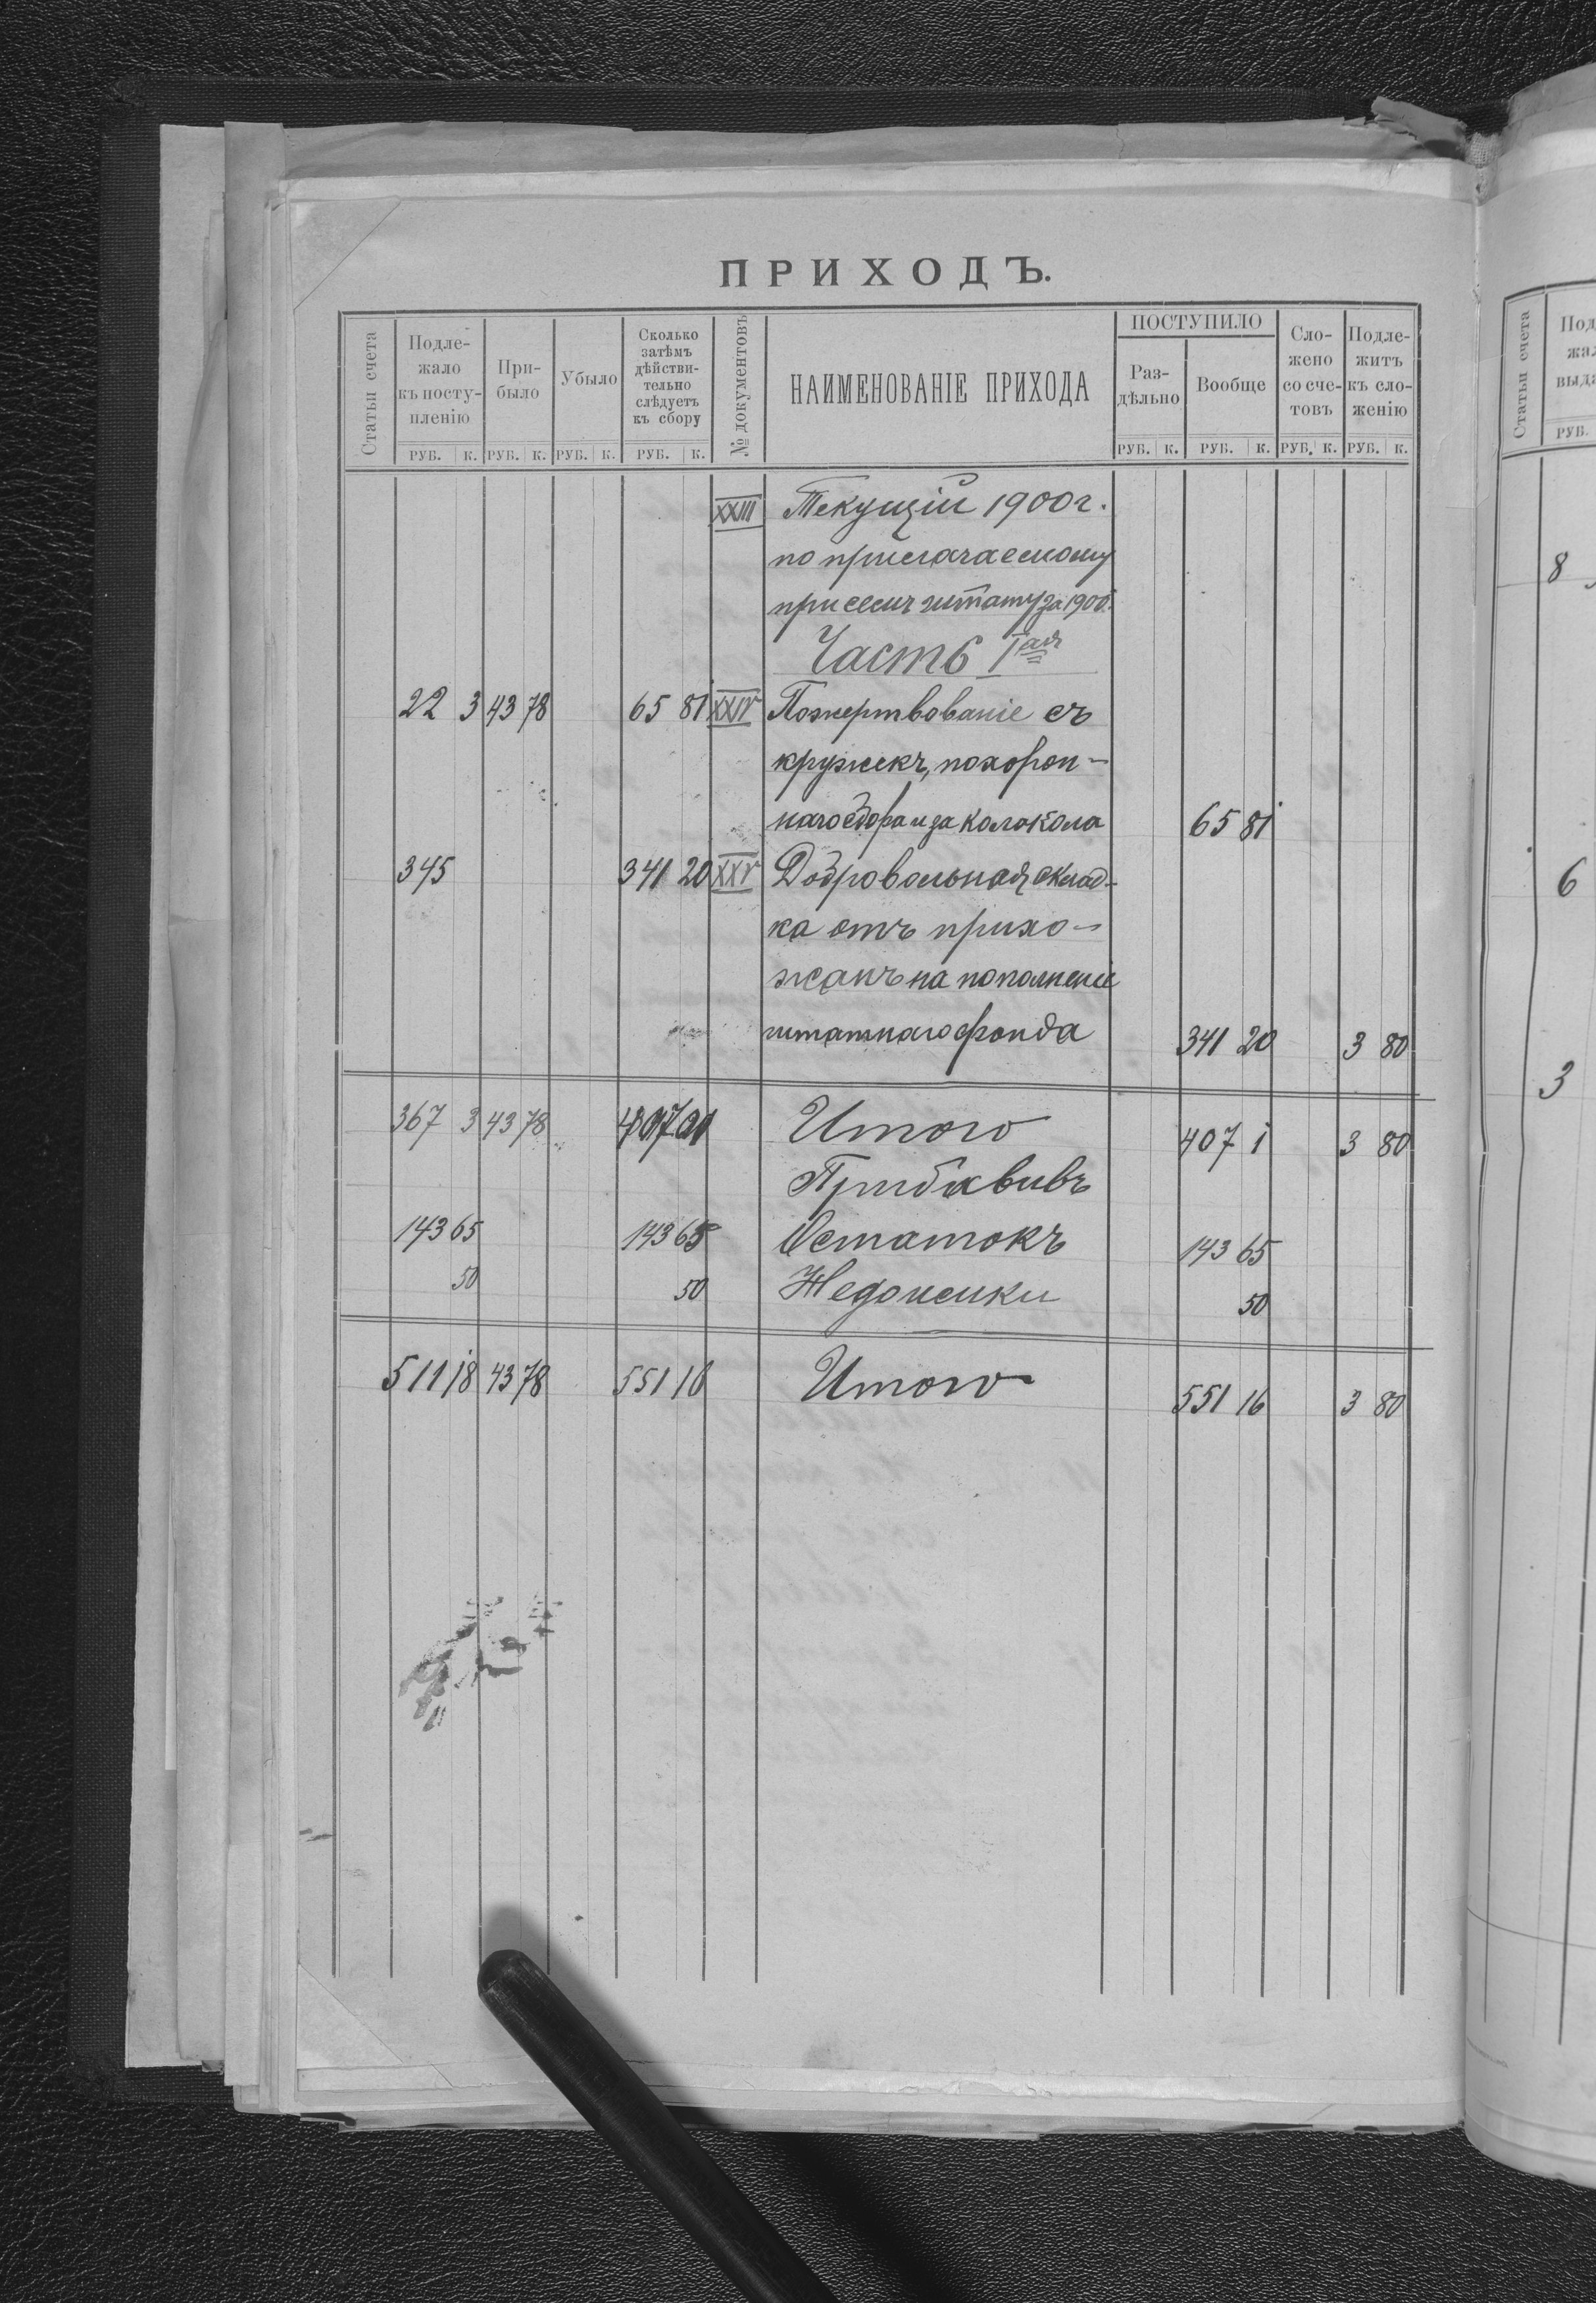 ПРИХОДЪ.
Статьи счета | Подле-жало къ посту-пленію | При-было | Убыло | Сколько затѣмъ дѣйстви-тельно слѣдуетъ къ сбору | № документовъ | НАИМЕНОВАНІЕ ПРИХОДА | ПОСТУПИЛО Раз-дѣльно | Вообще | Сло-жено со сче-товъ | Подле-житъ къ сло-женію
РУБ. К. РУБ. К. РУБ. К. РУБ. К. РУБ. К. РУБ. К. РУБ. К. РУБ. К.
XXIII Текущій 1900 г.
по прилагаемому
при семъ штату за 1900.
Часть Iая
22 3 43 78 65 81 XXIV Пожертвованіе съ
кружекъ, похорон-
наго сбора и за колокола 65 81
345 341 20 XXV Добровольная склад-
ка отъ прихо-
жанъ на пополненіе
штатнаго фонда 341 20 3 80
367 3 43 78 407 01 Итого 407 1 3 80
Прибавивъ
143 65 143 65 Остатокъ 143 65
50 50 Недоимки 50
511 18 43 78 551 16 Итого 551 16 3 80
Статьи счета
Под
жа
выда
РУБ.
8
6
3